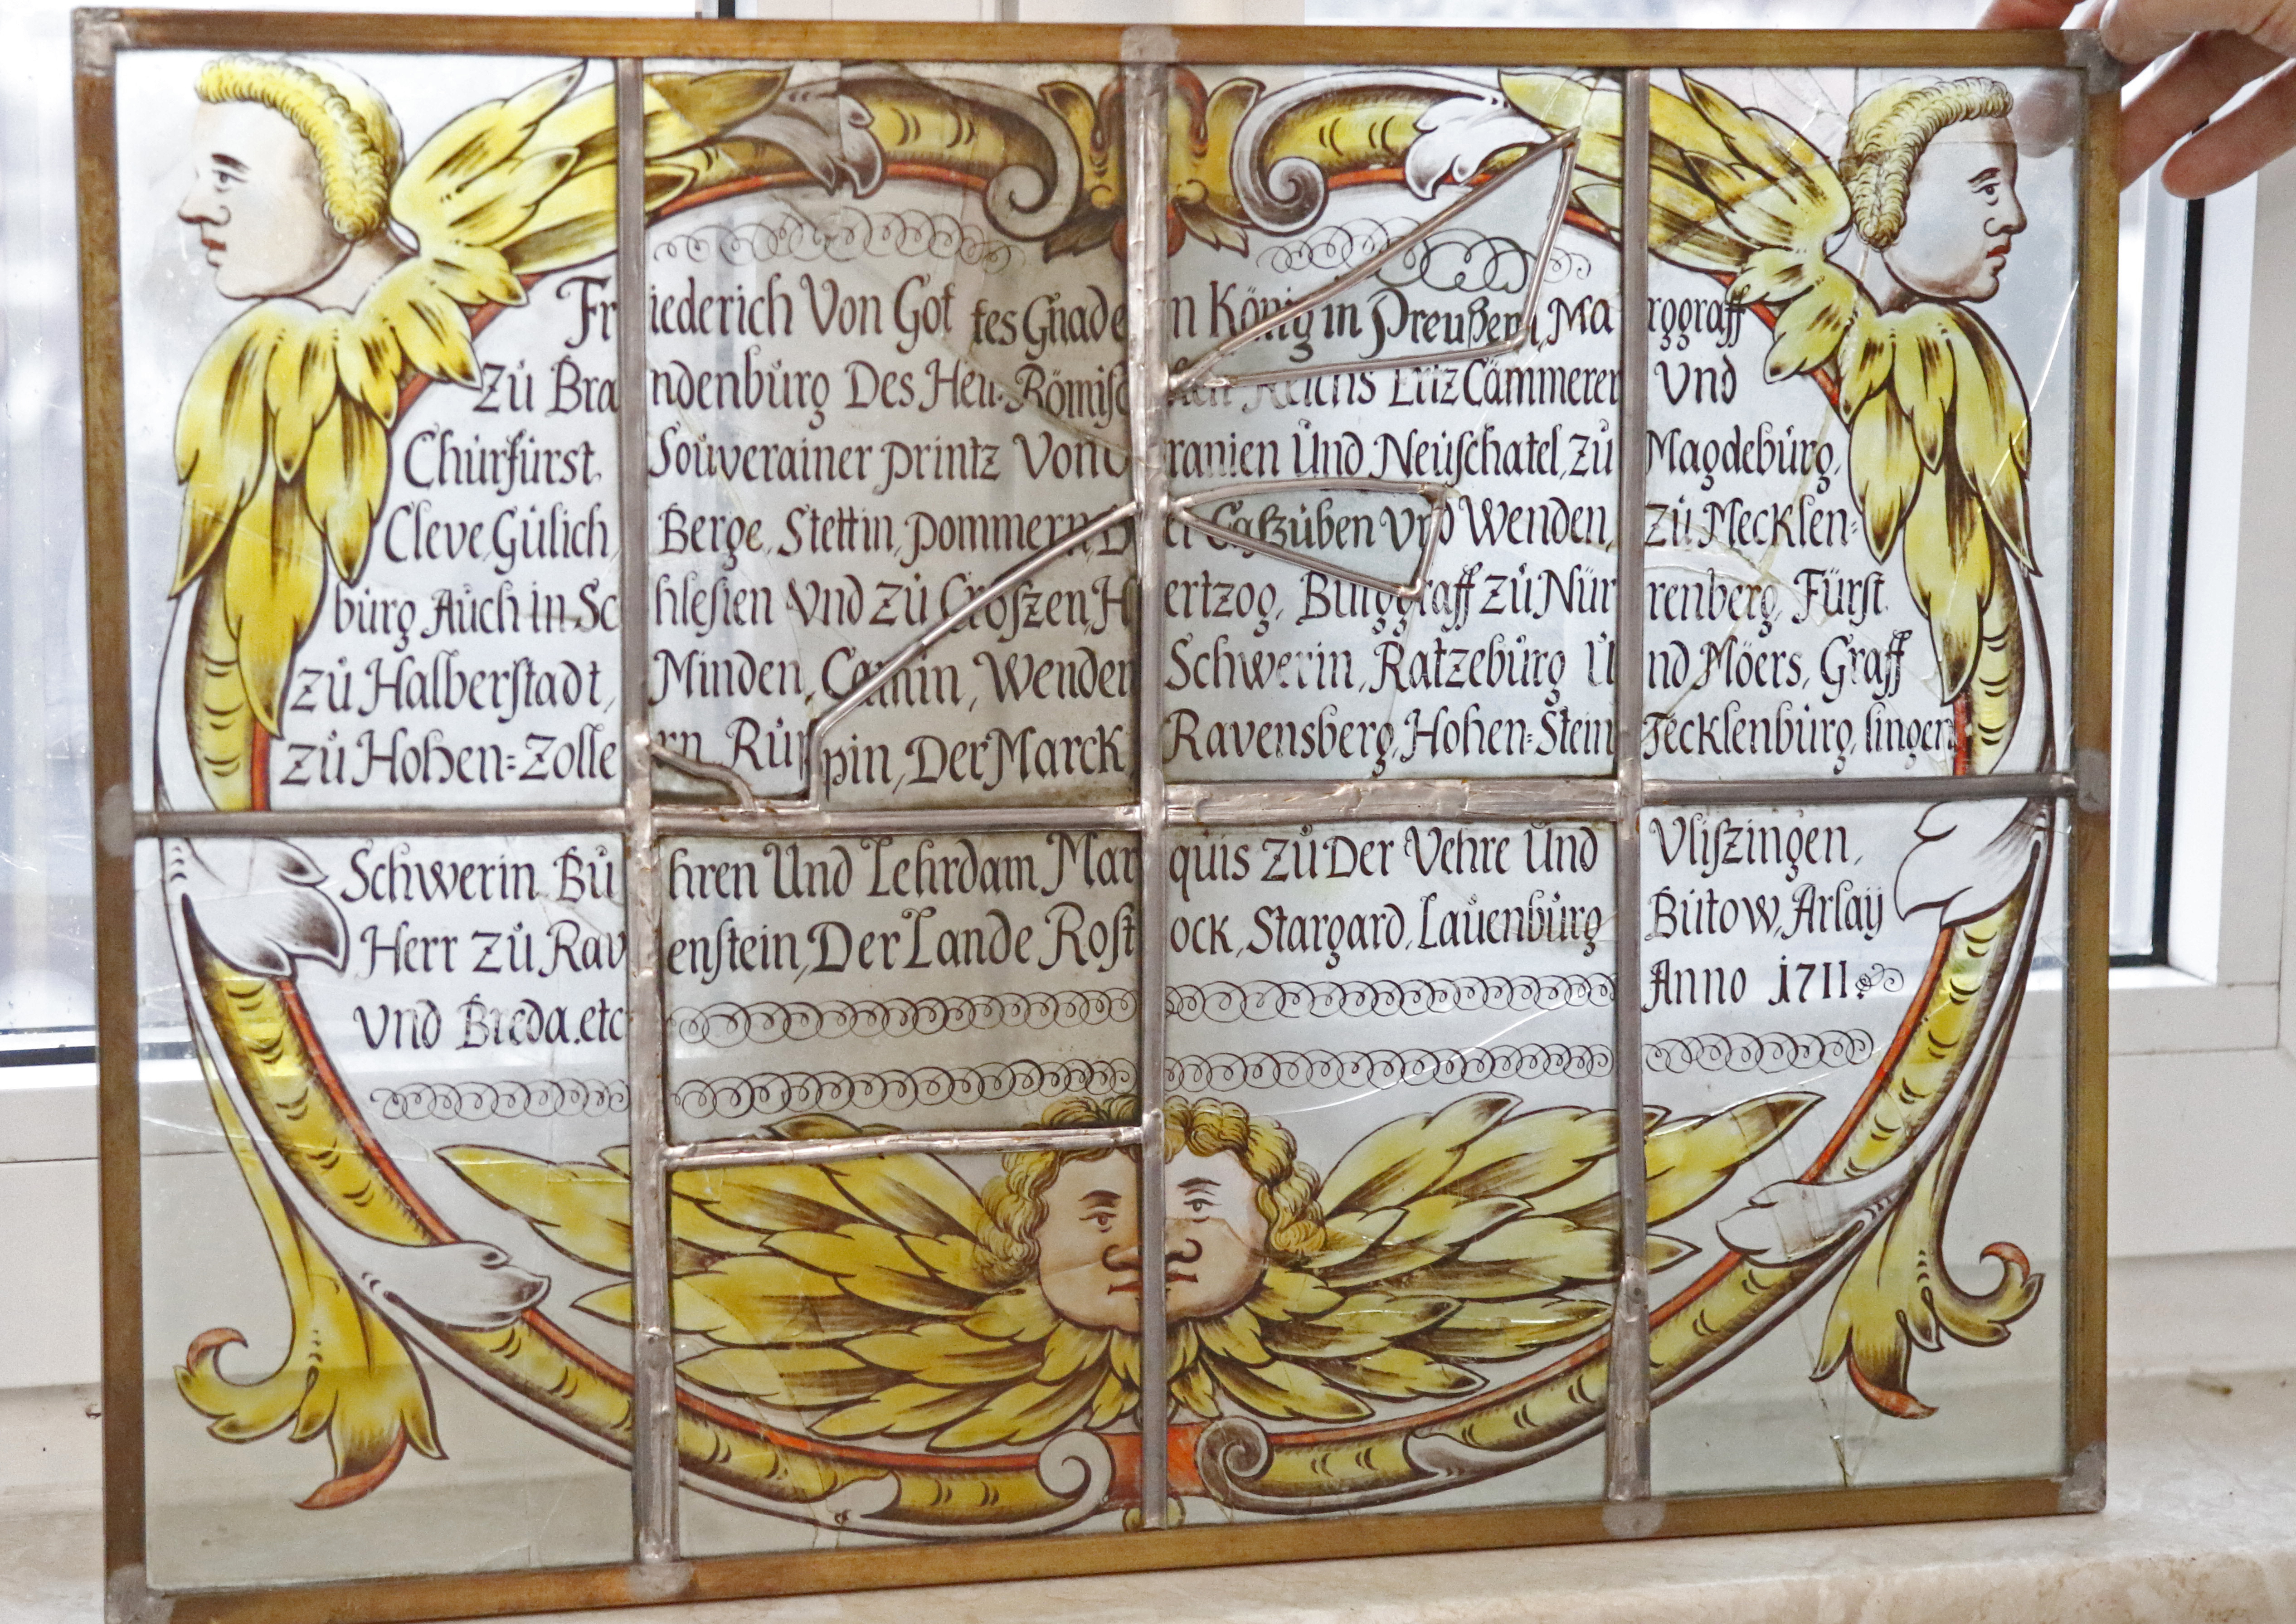 Friederich Von Gottes Gnaden König in Preußen, Marggraff
Zů Brandenbůrg Des Heil. Römischen Reichs Ertz Cämmerer Vnd
Chůrfürst. Soůverainer printz Von Oranien Und Neůfchatel, zů Magdebůrg,
Cleve, Gülich, Berge, Stettin, pommern, Der Caßzůben Vnd Wenden, zů Mecklen=
bůrg Aůch in Schlesien Vnd zů Croßzen, Hertzog, Bůrggraff zů Nürrenberg, Fürst
zů Halberstadt, Minden, Camin, Wenden Schwerin, Ratzebůrg Und Möers, Graff
zů Hohen=Zollern Růppin, Der Marck Ravensberg, Hohen=Stein Tecklenbůrg, lingen
Schwerin Bůhren Und Lehrdam Marqůis zů Der Vehre Und Vlißzingen,
Herr zů Ravenstein, Der Lande Rostock, Stargard, Laůenbůrg Bůtow, Arlaÿ
Vnd Breda. etc Anno 1711